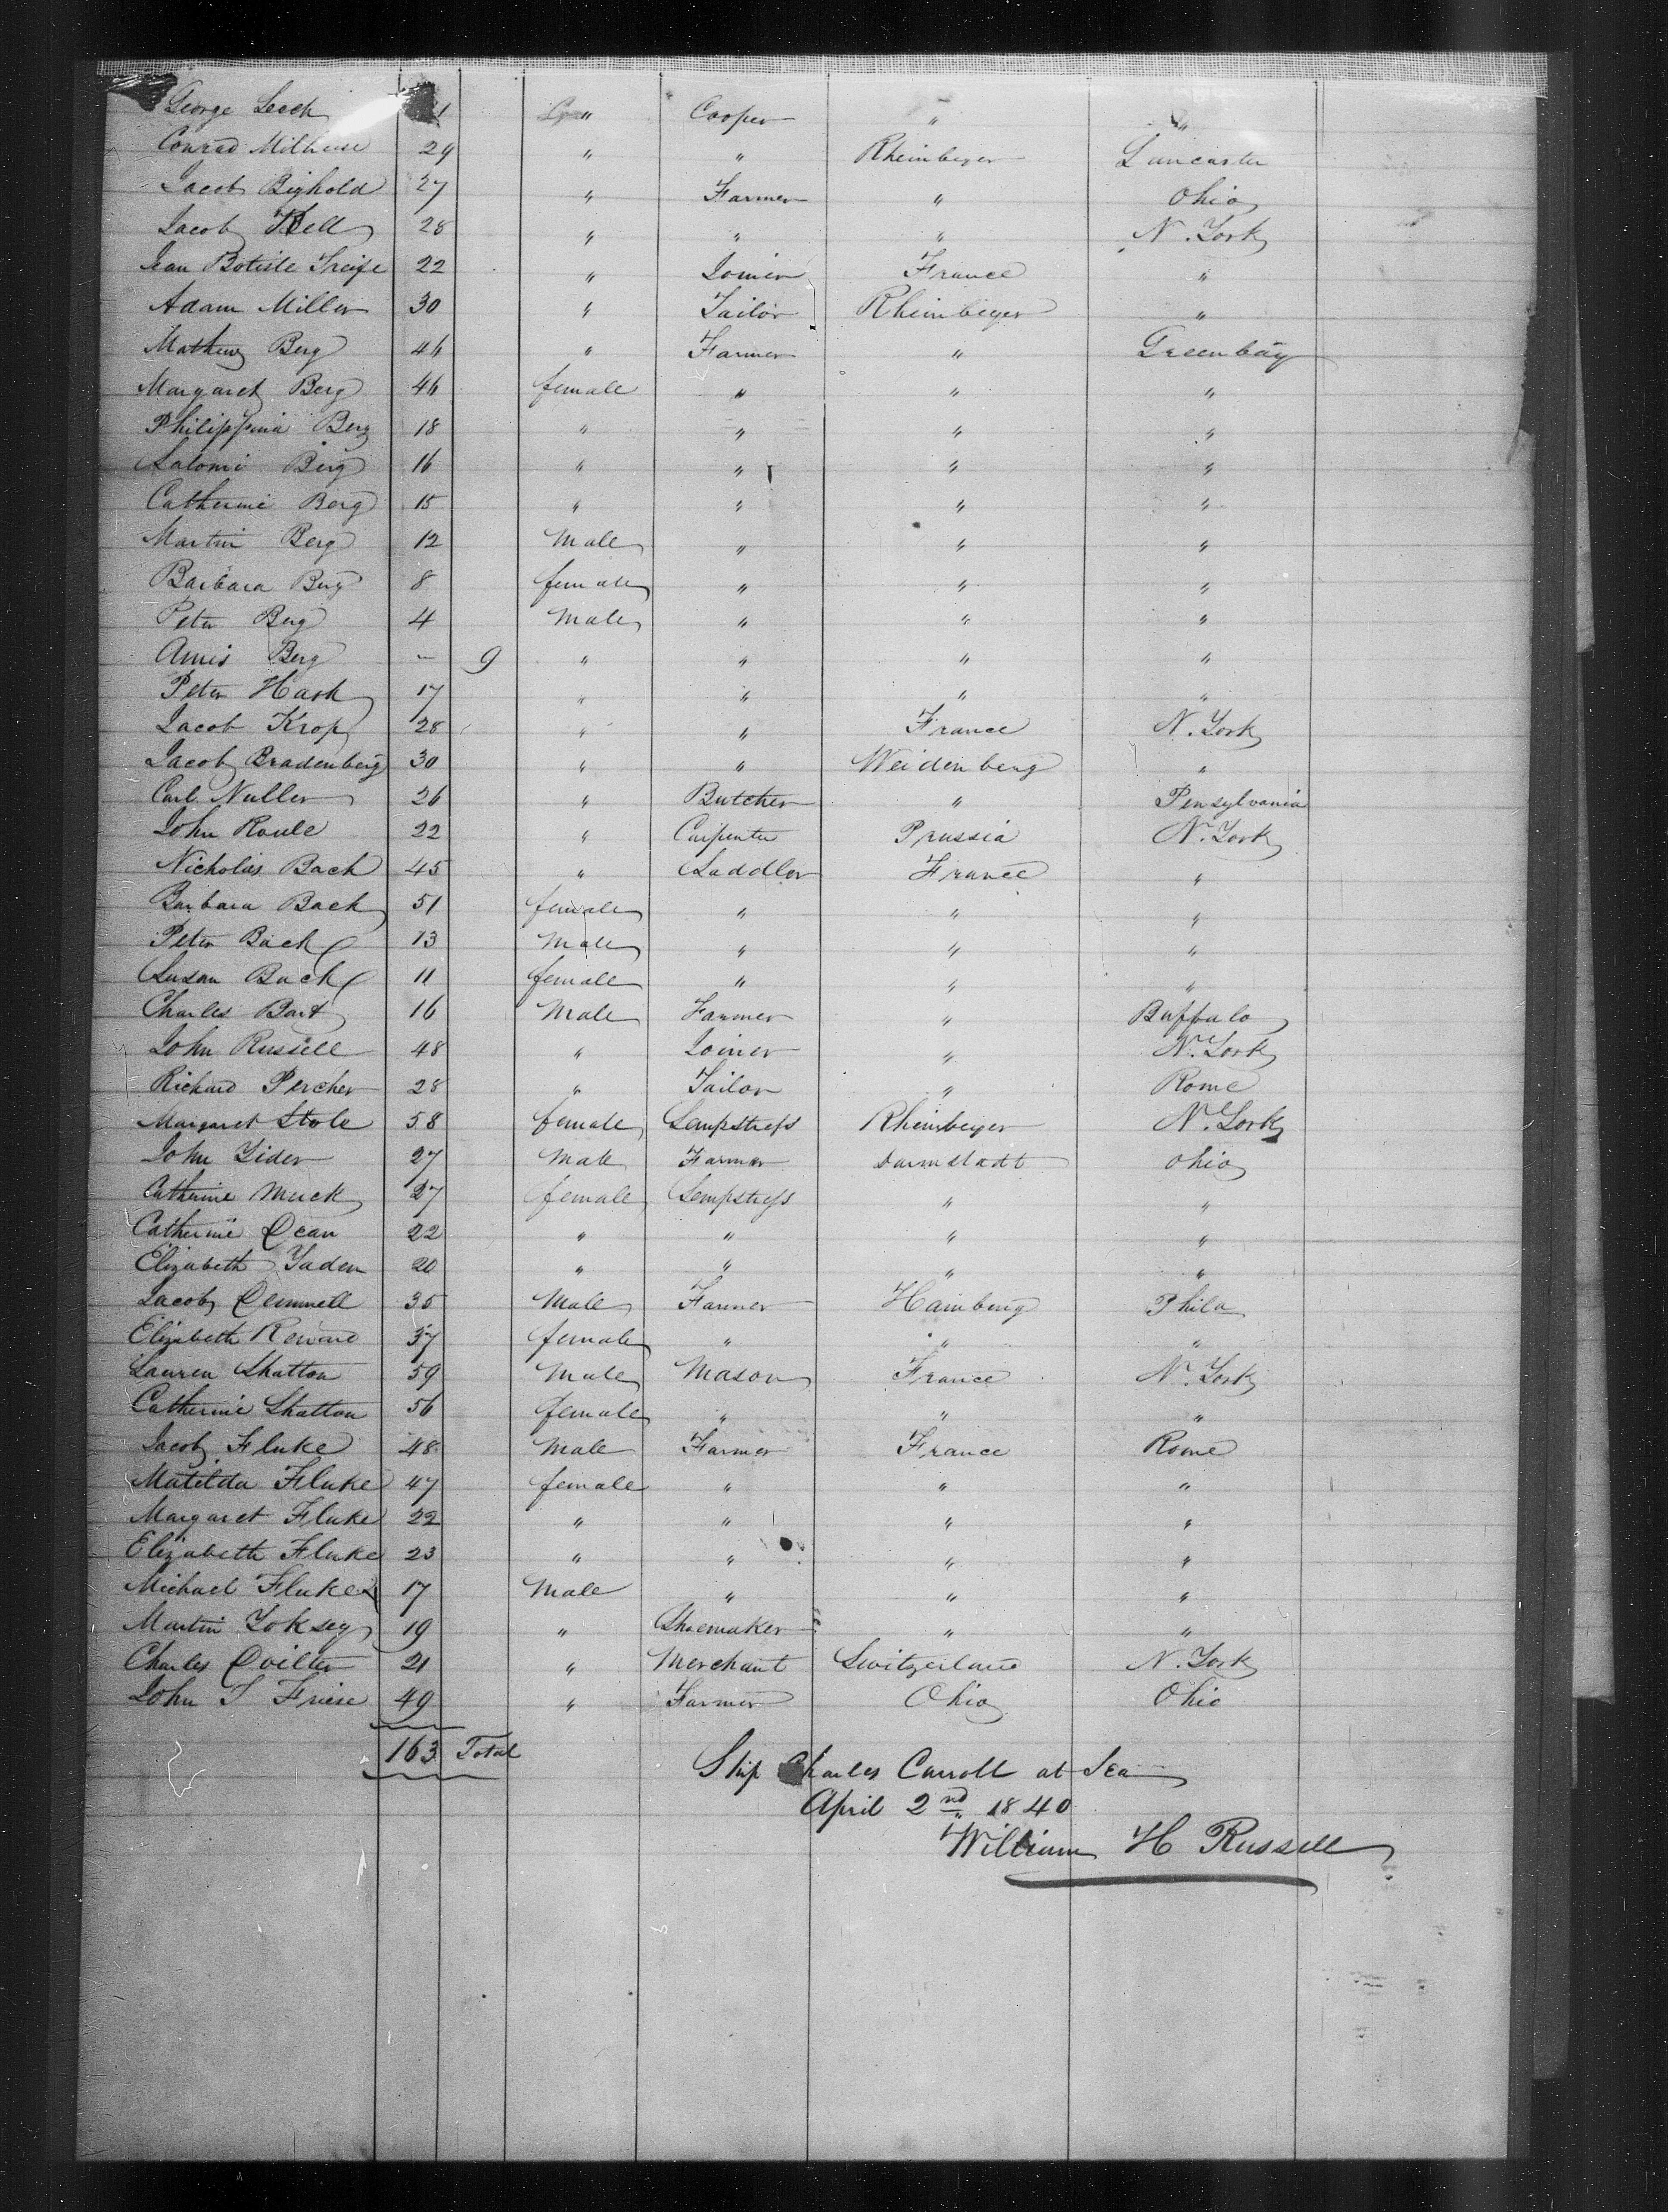 George Leech 1 " Cooper " "
Conrad Milheise 29 " " Rheinbeyer Lancaster
Jacob Bighold 27 " Farmer " Ohio
Jacob Kell 28 " " " N. York
Jean Batiste 22 " Joiner France "
Adam Miller 30 " Tailor Rheinbeyer "
Mathew Berg 46 " Farmer " Greenbay
Margaret Berg 46 female " " "
Philippina Berg 18 " " " "
Salomi Berg 16 " " " "
Catherine Berg 15 " " " "
Martin Berg 12 Male " " "
Barbara Berg 8 female " " "
Peter Berg 4 Male " " "
Amis Berg - 9 " " " "
Peter Hark 17 " " " "
Jacob Krop 28 " " France N. York
Jacob Bradenberg 30 " " Weidenberg "
Carl Nuller 26 " Butcher " Pensylvania
John Roule 22 " Carpenter Prussia N. York
Nicholas Back 45 " Saddler France "
Barbara Back 51 female " " "
Peter Back 13 Male " " "
Susan Back 11 female " " "
Charles Bart 16 Male Farmer " Buffalo
John Russell 48 " Joiner " N. York
Richard Percher 28 " Tailor " Rome
Margaret Stole 58 female Sempstress Rheinbeyer N. York
John Yider 27 Male Farmer Darmstadt Ohio
Catherine Muck 27 female Sempstress " "
Catherine Dean 22 " " " "
Elizabeth Yaden 20 " " " "
Jacob Demmell 35 Male Farmer Hainburg Phila
Elizabeth 37 female " " "
Lauren Shatton 59 Male Mason France N. York
Catherine Shatton 56 female " " "
Jacob Fluke 48 Male Farmer France Rome
Matilda Fluke 47 female " " "
Margaret Fluke 22 " " " "
Elizabeth Fluke 23 " " " "
Michael Fluke 17 Male " " "
Martin Yoksey 19 " Shoemaker " "
Charles Doilter 21 " Merchant Switzerland N. York
John T Friese 49 " Farmer Ohio Ohio
163 Total
Ship Charles Carroll at Sea
April 2nd 1840
William H Russell